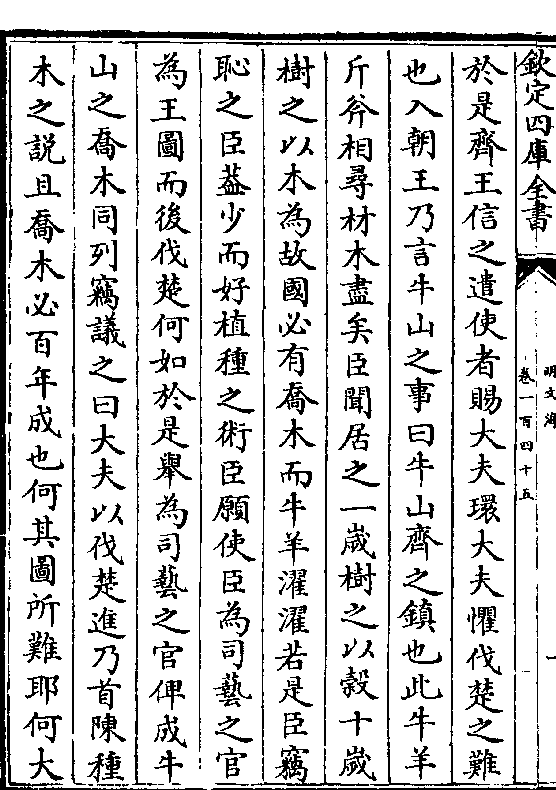 欽定四庫全書
明文海
卷一百四十五
一
於是齊王信之遣使者賜大夫環大夫懼伐楚之難
也入朝王乃言牛山之事曰牛山齊之鎮也此牛羊
斤斧相尋材木盡矣臣聞居之一歲樹之以穀十歲
樹之以木為故國必有喬木而牛羊濯濯若是臣竊
恥之臣葢少而好植種之術臣願使臣為司藝之官
為王圖而後伐楚何如於是舉為司藝之官俾成牛
山之喬木同列竊議之曰大夫以伐楚進乃首陳種
木之說且喬木必百年成也何其圖所難耶何大